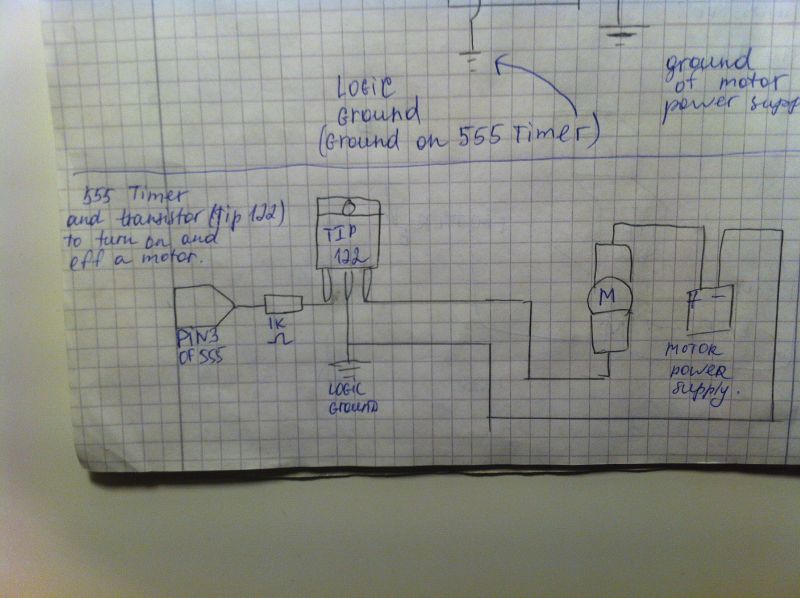 LOGIC
Ground
(Ground on 555 Timer)
ground
of motor
power supply
555 Timer
and transistor (Tip 122)
to turn on and
off a motor.
TIP
122
PIN3
OF 555
1K
Ω
LOGIC
GROUND
M
+ -
MOTOR
power
supply.